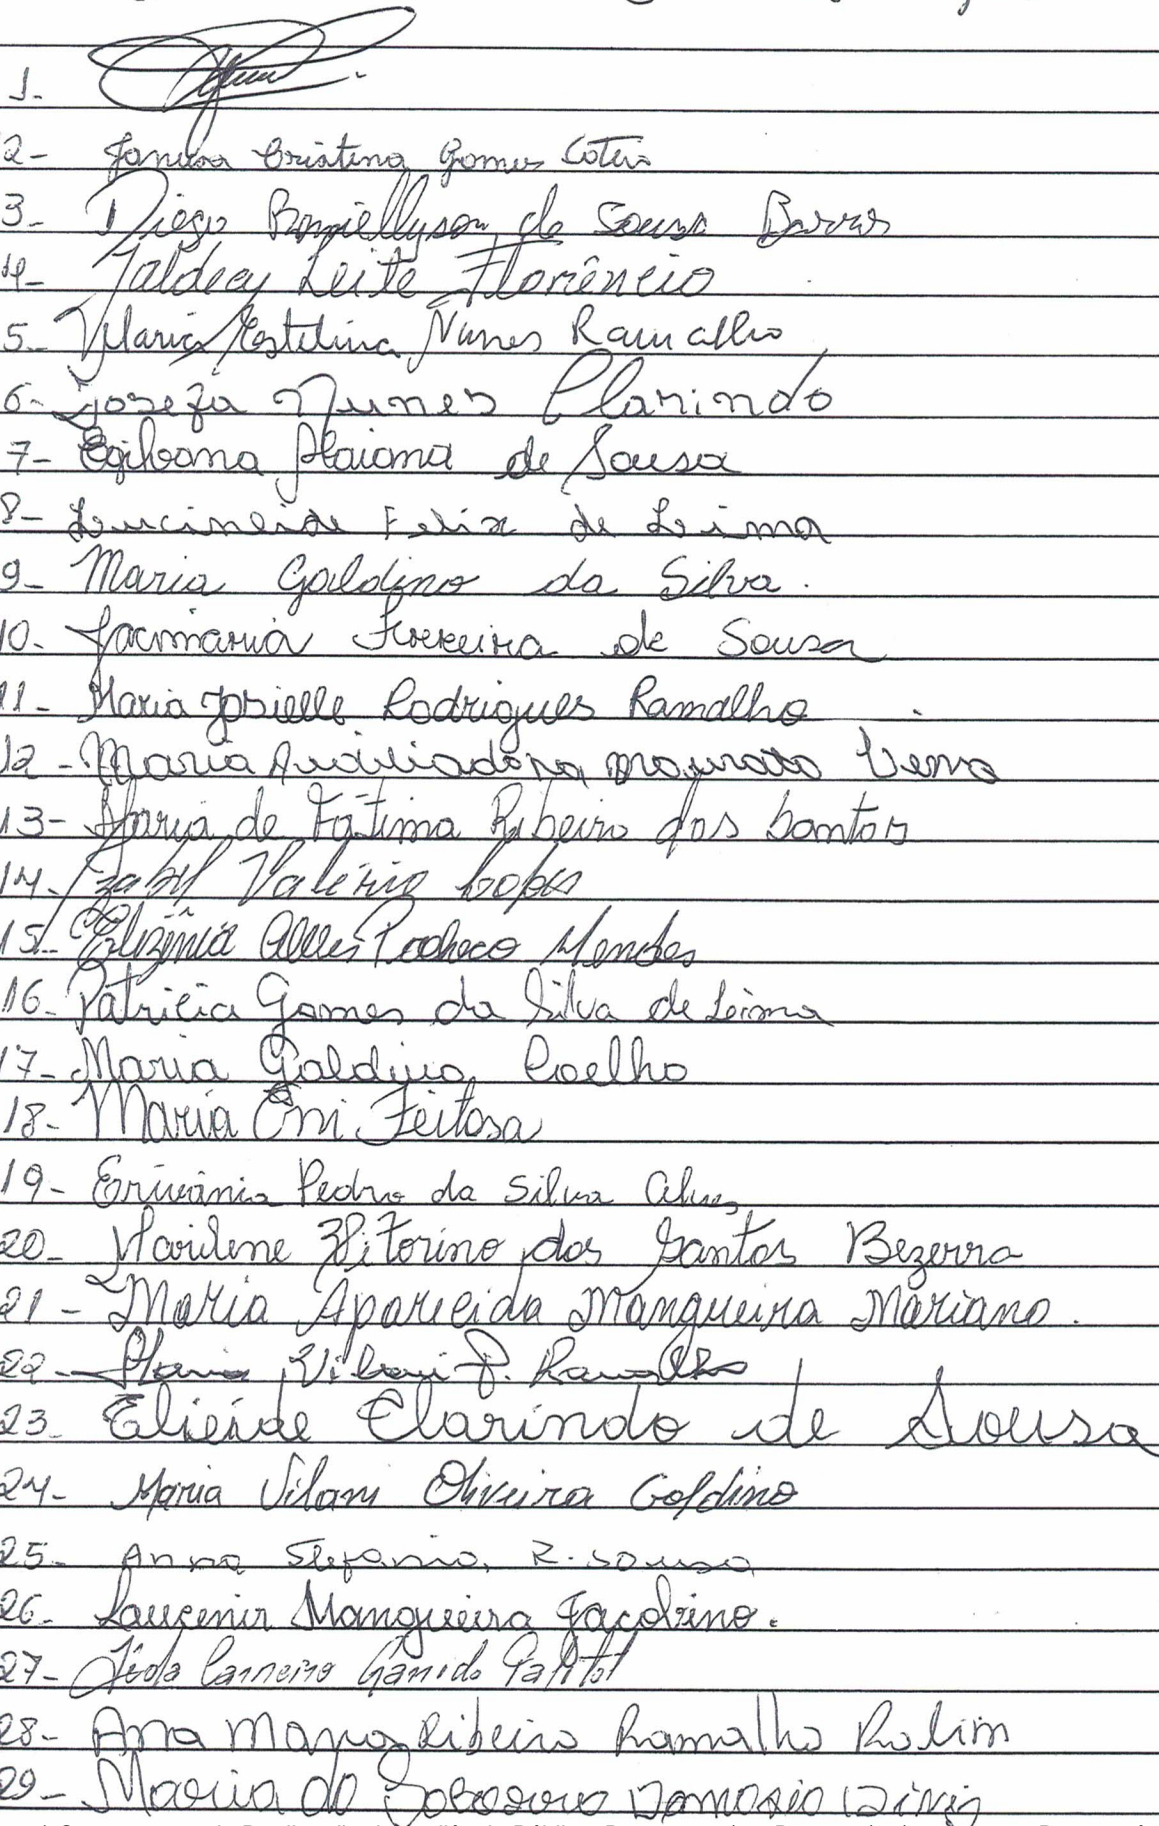 1-
2- Cristina Gomes
3- Diego de Sousa Barros
4- Jaldecy Leite Florêncio
5- Maria Estelina Nunes Ramalho
6- Josefa Nunes Clarindo
7- Egibana Maiana de Sousa
8- Leucineide Felix de Leima
9- Maria Galdino da Silva.
10- Jacimaria Ferreira de Sousa
11- Maria Josielle Rodrigues Ramalho
12- Maria Auxiliadora mourato
13- Maria de Fátima Ribeiro dos Santos
14- Izabel Valério Lopes
15- Elizênia Alves Pacheco Mendes
16- Patricia Gomes da Silva de Leima
17- Maria Galdino Coelho
18- Maria Oni Feitosa
19- Erivânia Pedro da Silva Alves
20- Marilene Vitorino dos Santos Bezerra
21- Maria Aparecida Mangueira Mariano.
22- Maria Vilani P. Ramalho
23- Elieide Clarindo de Sousa
24- Maria Vilani Oliveira Goldino
25- Anna Stefania R. Sousa
26- Laucenir Mangueira Jacobino.
27- Carneiro
28- Ana Ribeiro Ramalho Rolim
29- Maria do Socorro Damasio Diniz